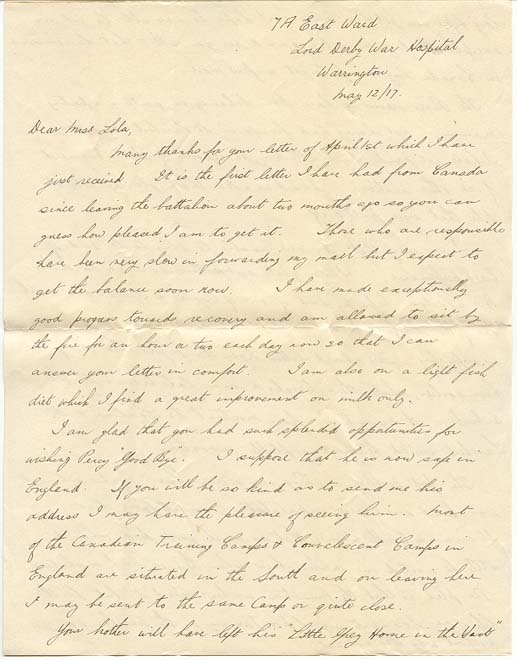 7A East Ward
Lord Derby War Hospital
Warrington
May 12/17.
Dear Miss Lola,
Many thanks for your letter of April 1st which I have
just received It is the first letter I have had from Canada
since leaving the battalion about two months ago so you can
guess how pleased I am to get it. Those who are responsible
have been very slow in forwarding my mail but I expect to
get the balance soon now. I have made exceptionally
good progress towards recovery and am allowed to sit by
the fire for an hour or two each day now so that I can
answer your letter in comfort. I am also on a light fish
diet which I find a great improvement on milk only.
I am glad that you had such splendid opportunities for
wishing Percy "Good Bye". I suppose that he is now safe in
England. If you will be so kind as to send me his
address I may have the pleasure of seeing him. Most
of the Canadian Training Camps & Convalescent Camps in
England are situated in the South and on leaving here
I may be sent to the same Camp or quite close.
Your brother will have left his "Little Grey Home in the West"